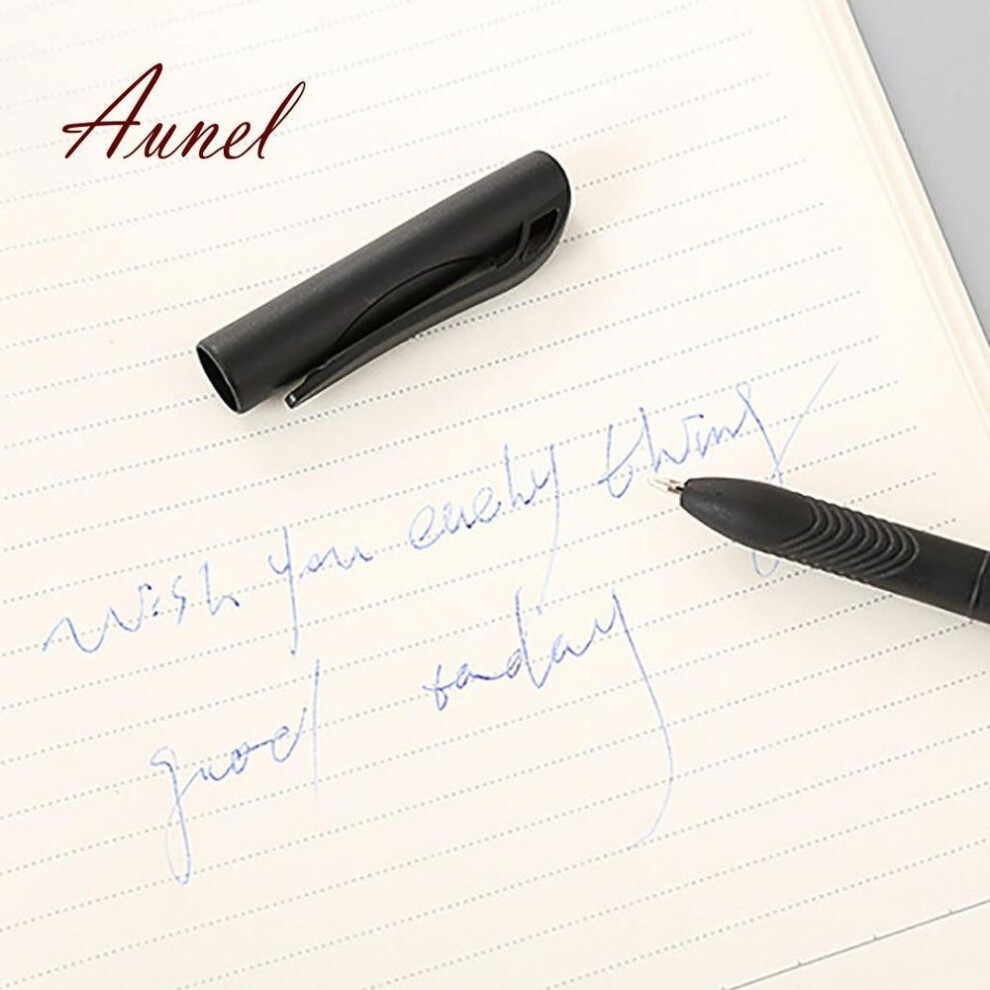 Aunel
wish you euehy thing
good today